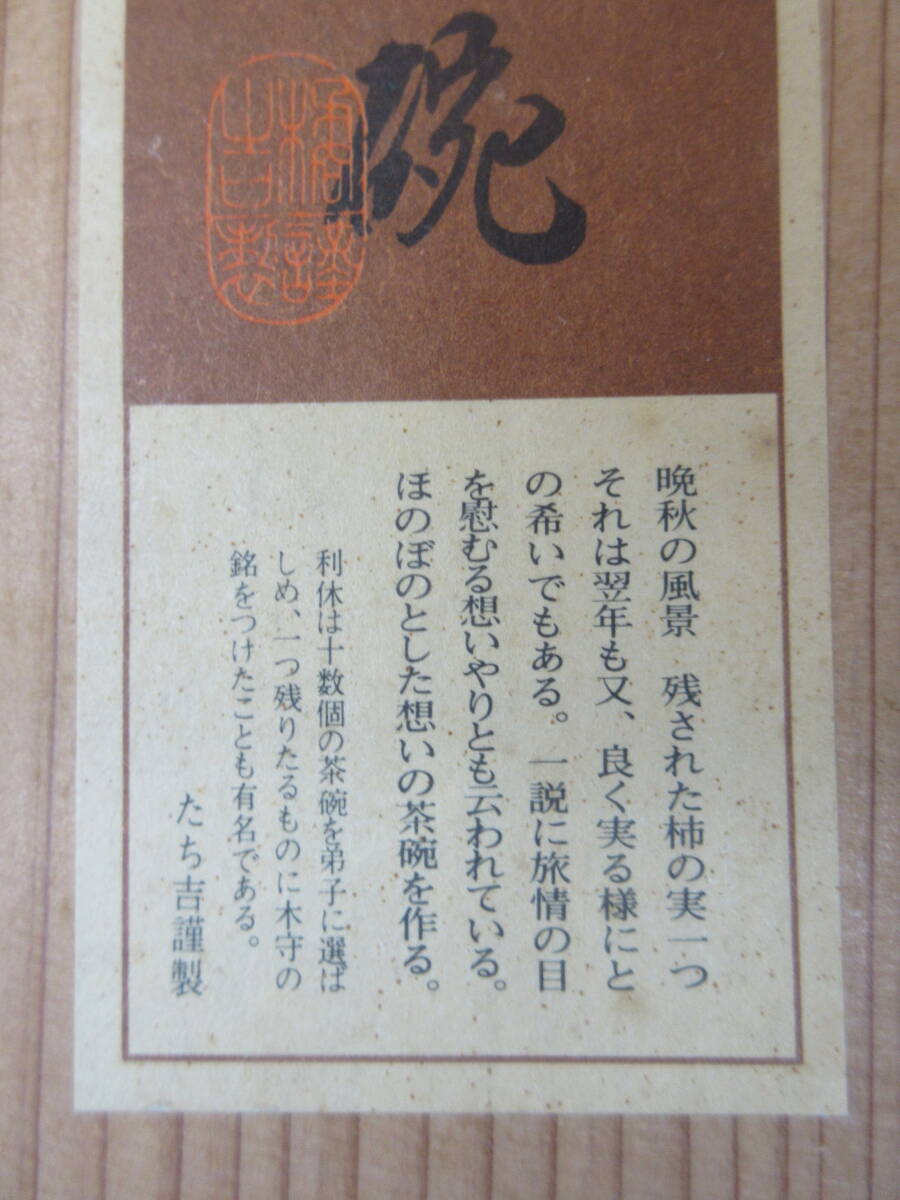 碗
橘謹
吉製
晩秋の風景　残された柿の実一つ
それは翌年も又、良く実る様にと
の希いでもある。一説に旅情の目
を慰むる想いやりとも云われている。
ほのぼのとした想いの茶碗を作る。
利休は十数個の茶碗を弟子に選ば
しめ、一つ残りたるものに木守の
銘をつけたことも有名である。
たち吉謹製